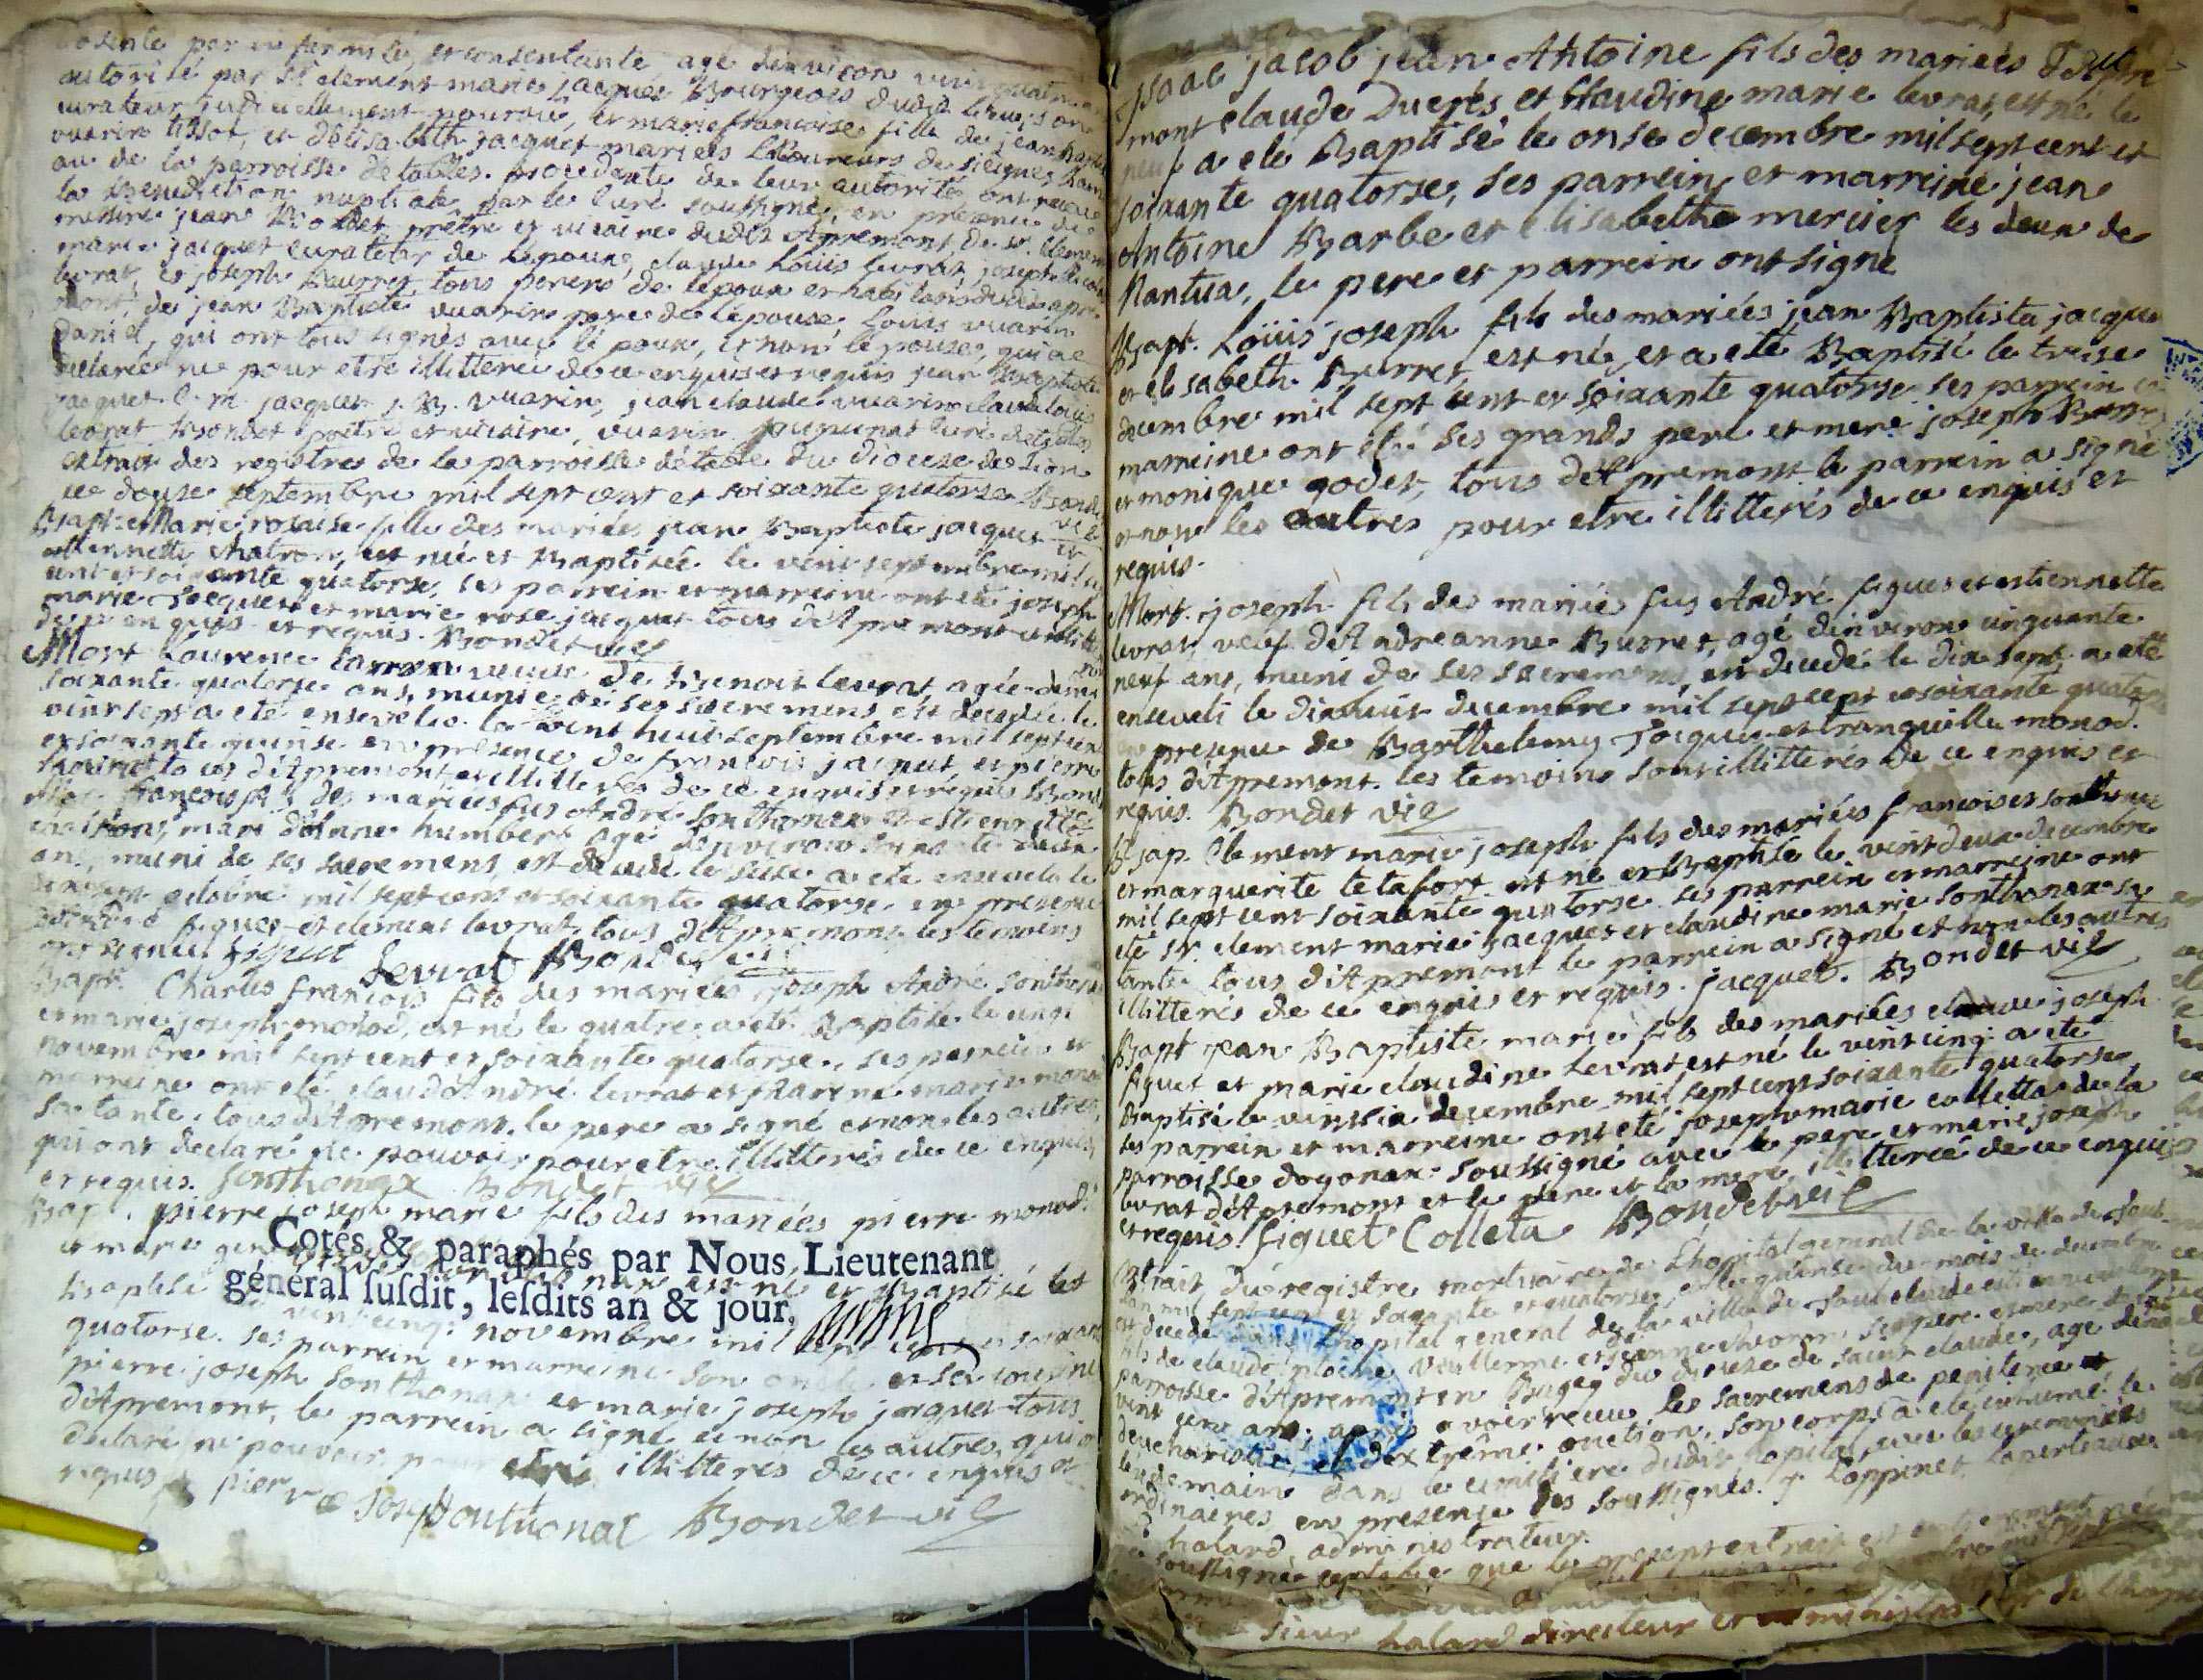 par et consentante agé denviron vint quatre
autorisé par sr clement marie jacquet Bourgeois dudit lieu son
curateur judiciellement pourvu, et marie francoise fille de jean
vuarin tissot, et délisabeth jacquet mariees Laboureurs de sieiges
de la parroisse détables. procedante de leur autorité, ont receu
la Benediction nuptiale par le curé soussigné, en presence de
messire jean Bondet prêtre et vicaire dudit Apremont, de sr. clement
marie jacquet curateur de lépoux, claude Louis levrat, joseph
levrat, et joseph Burret, tous parens de lépoux et habitans dudit apre
mont, de jean Baptiste vuarin pere de lépouse, Louis vuarin
Daniel, qui ont tous signés avec lé poux, et non lé pouse, qui a
declarée ne pour etre illitterée de ce enquis et requis jean Baptiste
jacquet C. m. jacquet j. B. vuarin, jean claude vuarin claude Louis
levrat Bondet prêtre et vicaire, vuarin curé détables
extrait des registres de la parroisse détable du diocese de Lion
ce douse septembre mil sept cent et soixante quatorse Bondet
vic
Bapt. Marie rosalie fille des mariées jean Baptiste jacquet et
etiennette chatron, est née et Baptisée le vint septembre mil sept
cent et soixante quatorse, ses parrein et marreine ont été joseph
marie Jacquet et marie rose jacquet tous dApremont
de ce enquis et requis. Bondet vic
Mort Laurence veuve de Benoit levrat, agée denviron
soixante quatorse ans, munie de ses sacremens est decedée le
vint sept a eté ensevelie le vint huit septembre mil sept cent
et soixante quinse en presence de francois jacquet, et pierre
tous dApremont, et illitterés de ce enquis et requis Bondet
Mort francois fils des mariées fus André Sonthonax et Etiennette
mari danne humbert agé denviron
ans, muni de ses sacremens, est decedé le seise a eté enseveli le
dixsept octobre mil sept cent et soixante quatorse, en presence
figuet et clement levrat, tous dApremont les temoins
ont signés figuet Levrat Bondet vic
Bapt. Charles francois fils des mariées joseph André Sonthonax
et marie joseph monod, est né le quatre a eté Baptisé le cinq
novembre mil sept cent et soixante quatorse, ses parrein et
marreine ont eté claude André levrat et marie monod
sa tante. tous dApremont. le pere a signé et non les autres,
qui ont declaré ne pouvoir pour etre illitterés de ce enquis,
et requis. Sonthonax Bondet vic
Bap. pierre joseph marie fils des mariées pierre monod
Cotés & paraphés par Nous Lieutenant
et marie est né et Baptisé les
général susdit, lesdits an & jour.
Baptisé vint cinq: novembre mil sept cent et soixante
quatorse. ses parrein et marreine son oncle et sa cousine
pierre joseph Sonthonax et marie joseph jacquet tous
dApremont, le parrein a signé et non les autres, qui ont
declaré ne pouvoir pour etre illitterés de ce enquis et
requis pierre Joseph Sonthonax Bondet vic
Isaac jacob jean Antoine fils des mariées dApre
mont claude Ducrés et Claudine marie levrat, est né le
neuf a eté Baptisé le onse decembre mil sept cent et
soixante quatorse, ses parrein et marreine jean
Antoine Barbe et elisabethe mercier les deux de
Nantua, le pere et parrein ont signé
Bapt. Loüis joseph fils des mariées jean Baptiste jacquet
et elisabeth Burret, est né, et a eté Baptisé le treise
decembre mil sept cent et soixante quatorse ses parrein et
marreine ont eté ses grands pere et mere joseph Burret
et monique godet, tous dApremont le parrein a signé
et non les autres pour etre illitterés de ce enquis et
requis.
Mort. joseph fils des mariés fus André figuet et estiennette
levrat, veuf dAndreanne Burret, agé denviron cinquante
neuf ans, muni de ses sacremens, est decedé le dix sept a eté
enseveli le dixhuit decembre mil sept cent et soixante quatorse
en presence de Barthelemy Jacquet et tranquille monod.
tous dApremont. les temoins sont illitterés de ce enquis et
requis. Bondet vic
Bap. Clement marie joseph fils des mariées francois sonthonax
et marguerite tetafort est né et Baptisé le vint deux decembre
mil sept cent soixante quatorse ses parrein et marreine ont
eté sr. clement marie jacquet et claudine marie sonthonax sa
tante tous dApremont le parrein a signé et non les autres
illitterés de ce enquis et requis. jacquet. Bondet vic
Bapt jean Baptiste marie fils des mariées claude joseph
figuet et marie claudine Levrat est né le vint cinq: a eté
Baptisé le vint six decembre mil sept cent soixante quatorse
ses parrein et marreine ont eté joseph marie colletta de la
parroisse doyonax soussigné avec le pere et marie joseph
levrat dApremont et le pere et la mere illitterée de ce enquis
et requis. figuet Colleta Bondet vic
Extrait du registre mortuaire de Lhopital general de la ville de Saint
Claude Lan mil sept cent et soixante et quatorse, et le quinse du mois de decembre
est decedé dans Lhopital general de la ville de Saint claude
fils de claude vuillerme et jeanne ses pere et mere de la
parroisse dApremont en Bugey du diocese de Saint claude, agé denviron
vint cinq ans, apres avoir receu les sacremens de penitence et
deucharistie, et dextrême onction, son corps a eté inhumé le
lendemain dans le cimitiere dudit hopital, avec les ceremonies
ordinaires en presence des soussignés. Coppinet
halard administrateur.
soussigné certifie que le present extrait
Sieur halard directeur et administrateur de Lhopital